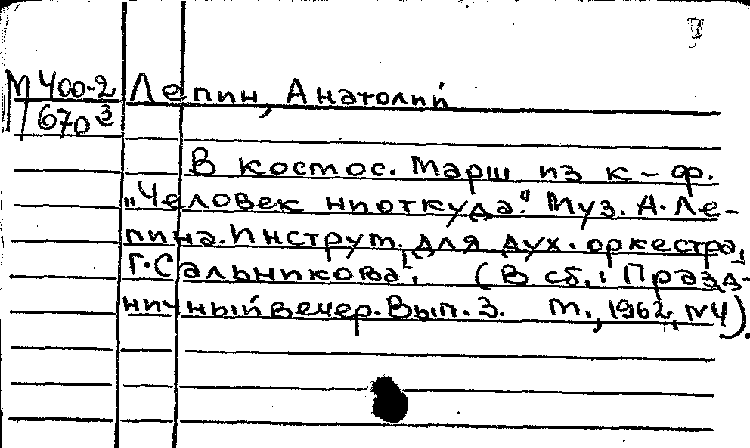 М 400-2 Лепин, Анатолий
670 3
В космос. Марш из к-ф.
„Человек ниоткуда". Муз. А. Ле-
пина. Инструм. для дух. оркестра,
Г. Сальникова. (В сб.: Празд-
ничный вечер. Вып. 3. М., 1962, №4).